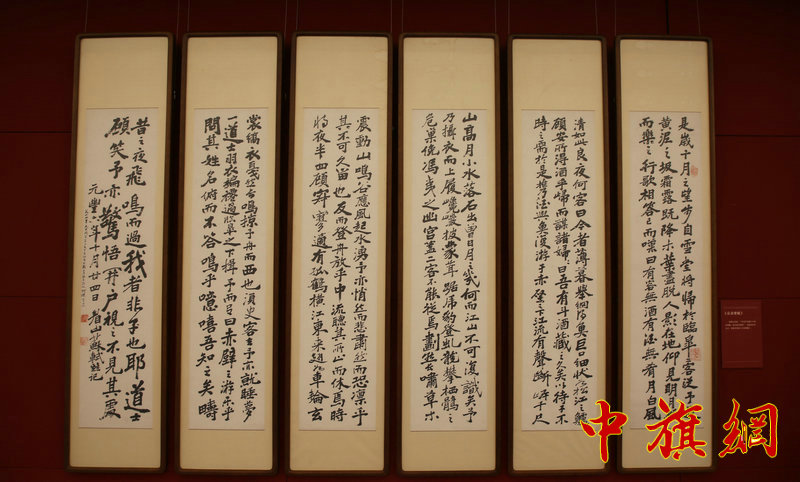 是歲十月之望步自雪堂將歸於臨皋二客從予
黃泥之坂霜露既降木葉盡脫人影在地仰見明月
而樂之行歌相答已而嘆曰有客無酒有酒無肴月白風
清如此良夜何客曰今者薄暮舉網得魚巨口細狀似松江之鱸
顧安所得酒乎歸而謀諸婦曰吾有斗酒藏之久矣以待子不
時之需於是携酒與魚復游于赤壁之下江流有聲斷岸千尺
山高月小水落石出曾日月之幾何而江山不可復識矣予
乃攝衣而上履巉巖披蒙茸踞虎豹登虬龍攀栖鶻之
危巢俯馮夷之幽宮蓋二客不能從焉劃然長嘯草木
震動山鳴谷應風起水湧予亦悄然而悲肅然而恐凛乎
其不可久留也反而登舟放乎中流聽其所止而休焉時
將夜半四顧寂寥適有孤鶴橫江東來翅如車輪玄
裳縞衣戛然長鳴掠予舟而西也須臾客去予亦就睡夢
一道士羽衣翩躚過臨皋之下揖予而言曰赤壁之游樂乎
問其姓名俯而不答嗚乎噫嘻吾知之矣疇
昔之夜飛鳴而過我者非子也耶道士
顧笑予亦驚悟開戶視之不見其處
元豐六年十月廿四日眉山蘇軾記
中旗網